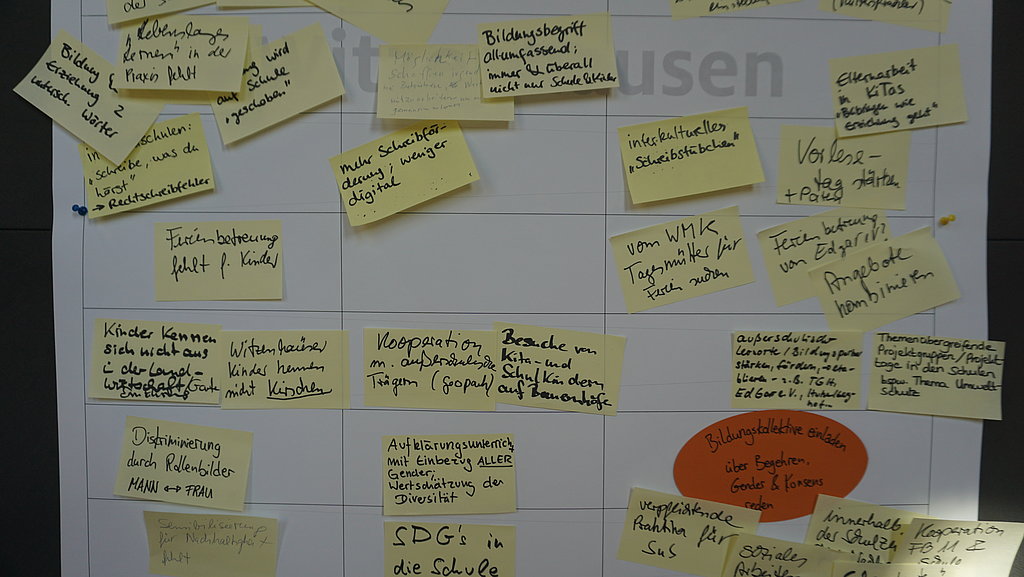 der S
"Lebenslanges
Lernen" in der
Praxis fehlt
Bildung &
Erziehung 2
untersch. Wörter
wird
auf Schule
"geschoben"
Bildungsbegriff
allumfassend;
immer & überall
nicht nur Schule & Kita
Möglichkeit
usen
Elternarbeit
in KiTas
"Beibringen wie
Erziehung geht"
schulen:
"schreibe, was du
hörst"
→ Rechtschreibfehler
mehr Schreibför-
derung; weniger
digital;
interkulturelles
"Schreibstübchen"
Vorlese-
tag stärken
+ Paten
Ferienbetreuung
fehlt f. Kinder
vom WMK
Tagesmütter für
Ferien suchen
Ferienbetreuung
von Edgar
Angebote
kombinieren
Kinder kennen
sich nicht aus
i. der Land-
wirtschaft/
Witzenhäuser
Kinder kennen
nicht Kirschen
Kooperation
m. außerschulische
Trägern (geopark)
Besuche von
Kita- und
Schulkindern
auf Bauernhöfe
außerschulische
Lernorte/Bildungspartner
stärken, fördern, eta-
blieren - z.B. TGH,
EdGar e.V.,
Themenübergreifende
Projektgruppen/Projekt-
tage in den Schulen
bspw. Thema Umwelt-
schutz
Diskriminierung
durch Rollenbilder
MANN ↔ FRAU
Aufklärungsunterricht
mit Einbezug ALLER
Gender;
Wertschätzung der
Diversität
Bildungskollektive einladen
über Begehren,
Gender & Konsens
reden
Sensibilisierung
für Nachhaltigkeit
fehlt
SDG's in
die Schule
verpflichtende
Praktika für
SuS
soziales
Arbeiten
innerhalb
der Schulen
Kooperation
FB 11 I